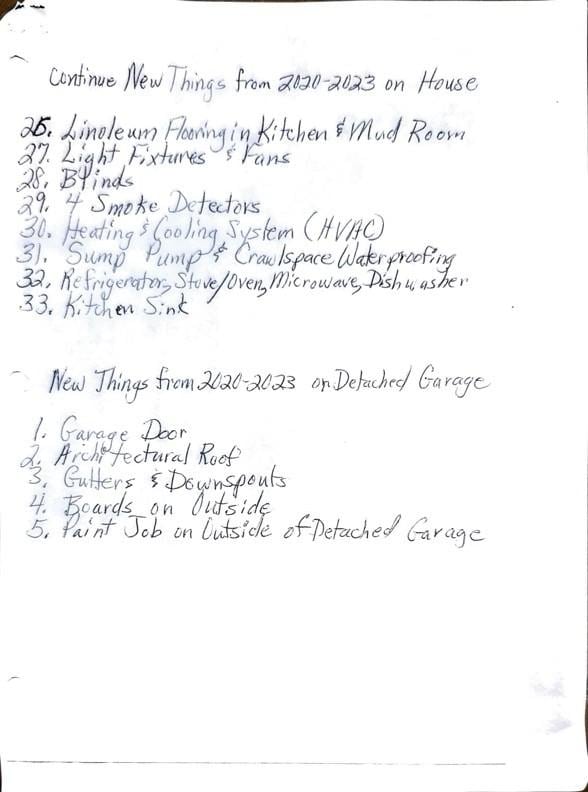 Continue New Things from 2020-2023 on House
26. Linoleum Flooring in Kitchen & Mud Room
27. Light Fixtures & Fans
28. Blinds
29. 4 Smoke Detectors
30. Heating & Cooling System (HVAC)
31. Sump Pump & Crawlspace Waterproofing
32. Refrigerator, Stove/Oven, Microwave, Dishwasher
33. Kitchen Sink
New Things from 2020-2023 on Detached Garage
1. Garage Door
2. Architectural Roof
3. Gutters & Downspouts
4. Boards on Outside
5. Paint Job on Outside of Detached Garage